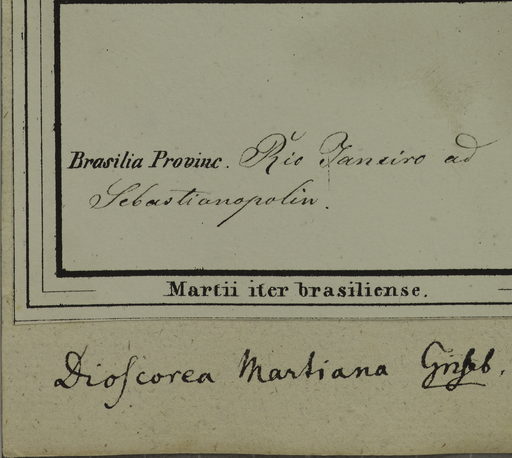 Brasilia Provinc. Rio Janeiro ad
Sebastianopolin.
Martii iter brasiliense.
Dioſcorea Martiana Griseb.